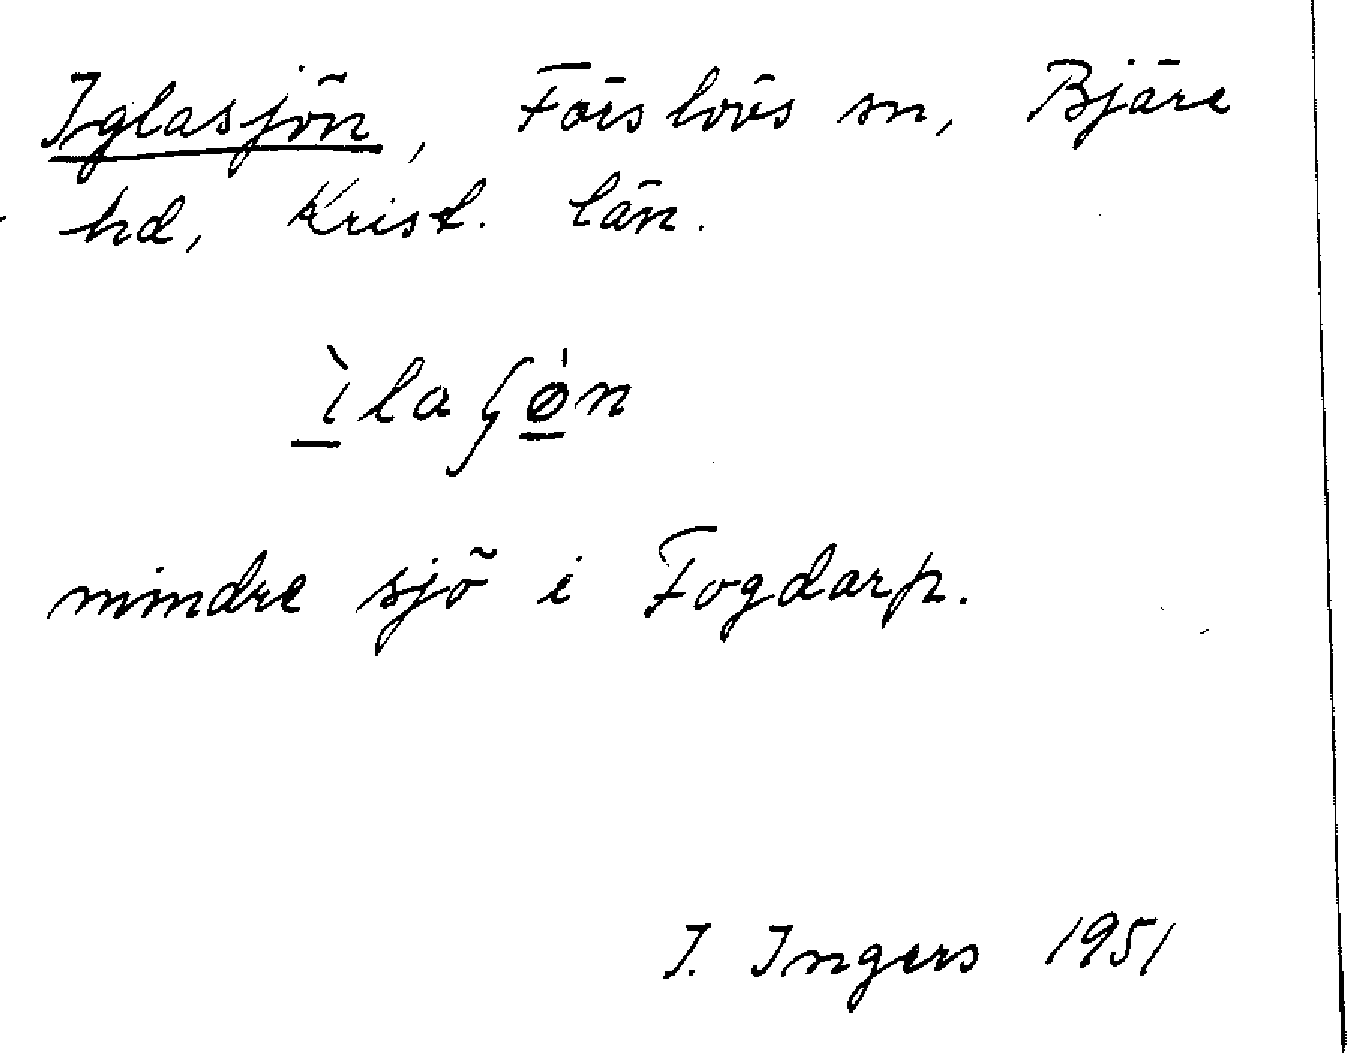 Iglasjön, Förslövs sn, Bjäre
hd, Krist. län.
ìlaʃǿn
mindre sjö i Fogdarp.
I. Ingers 1951